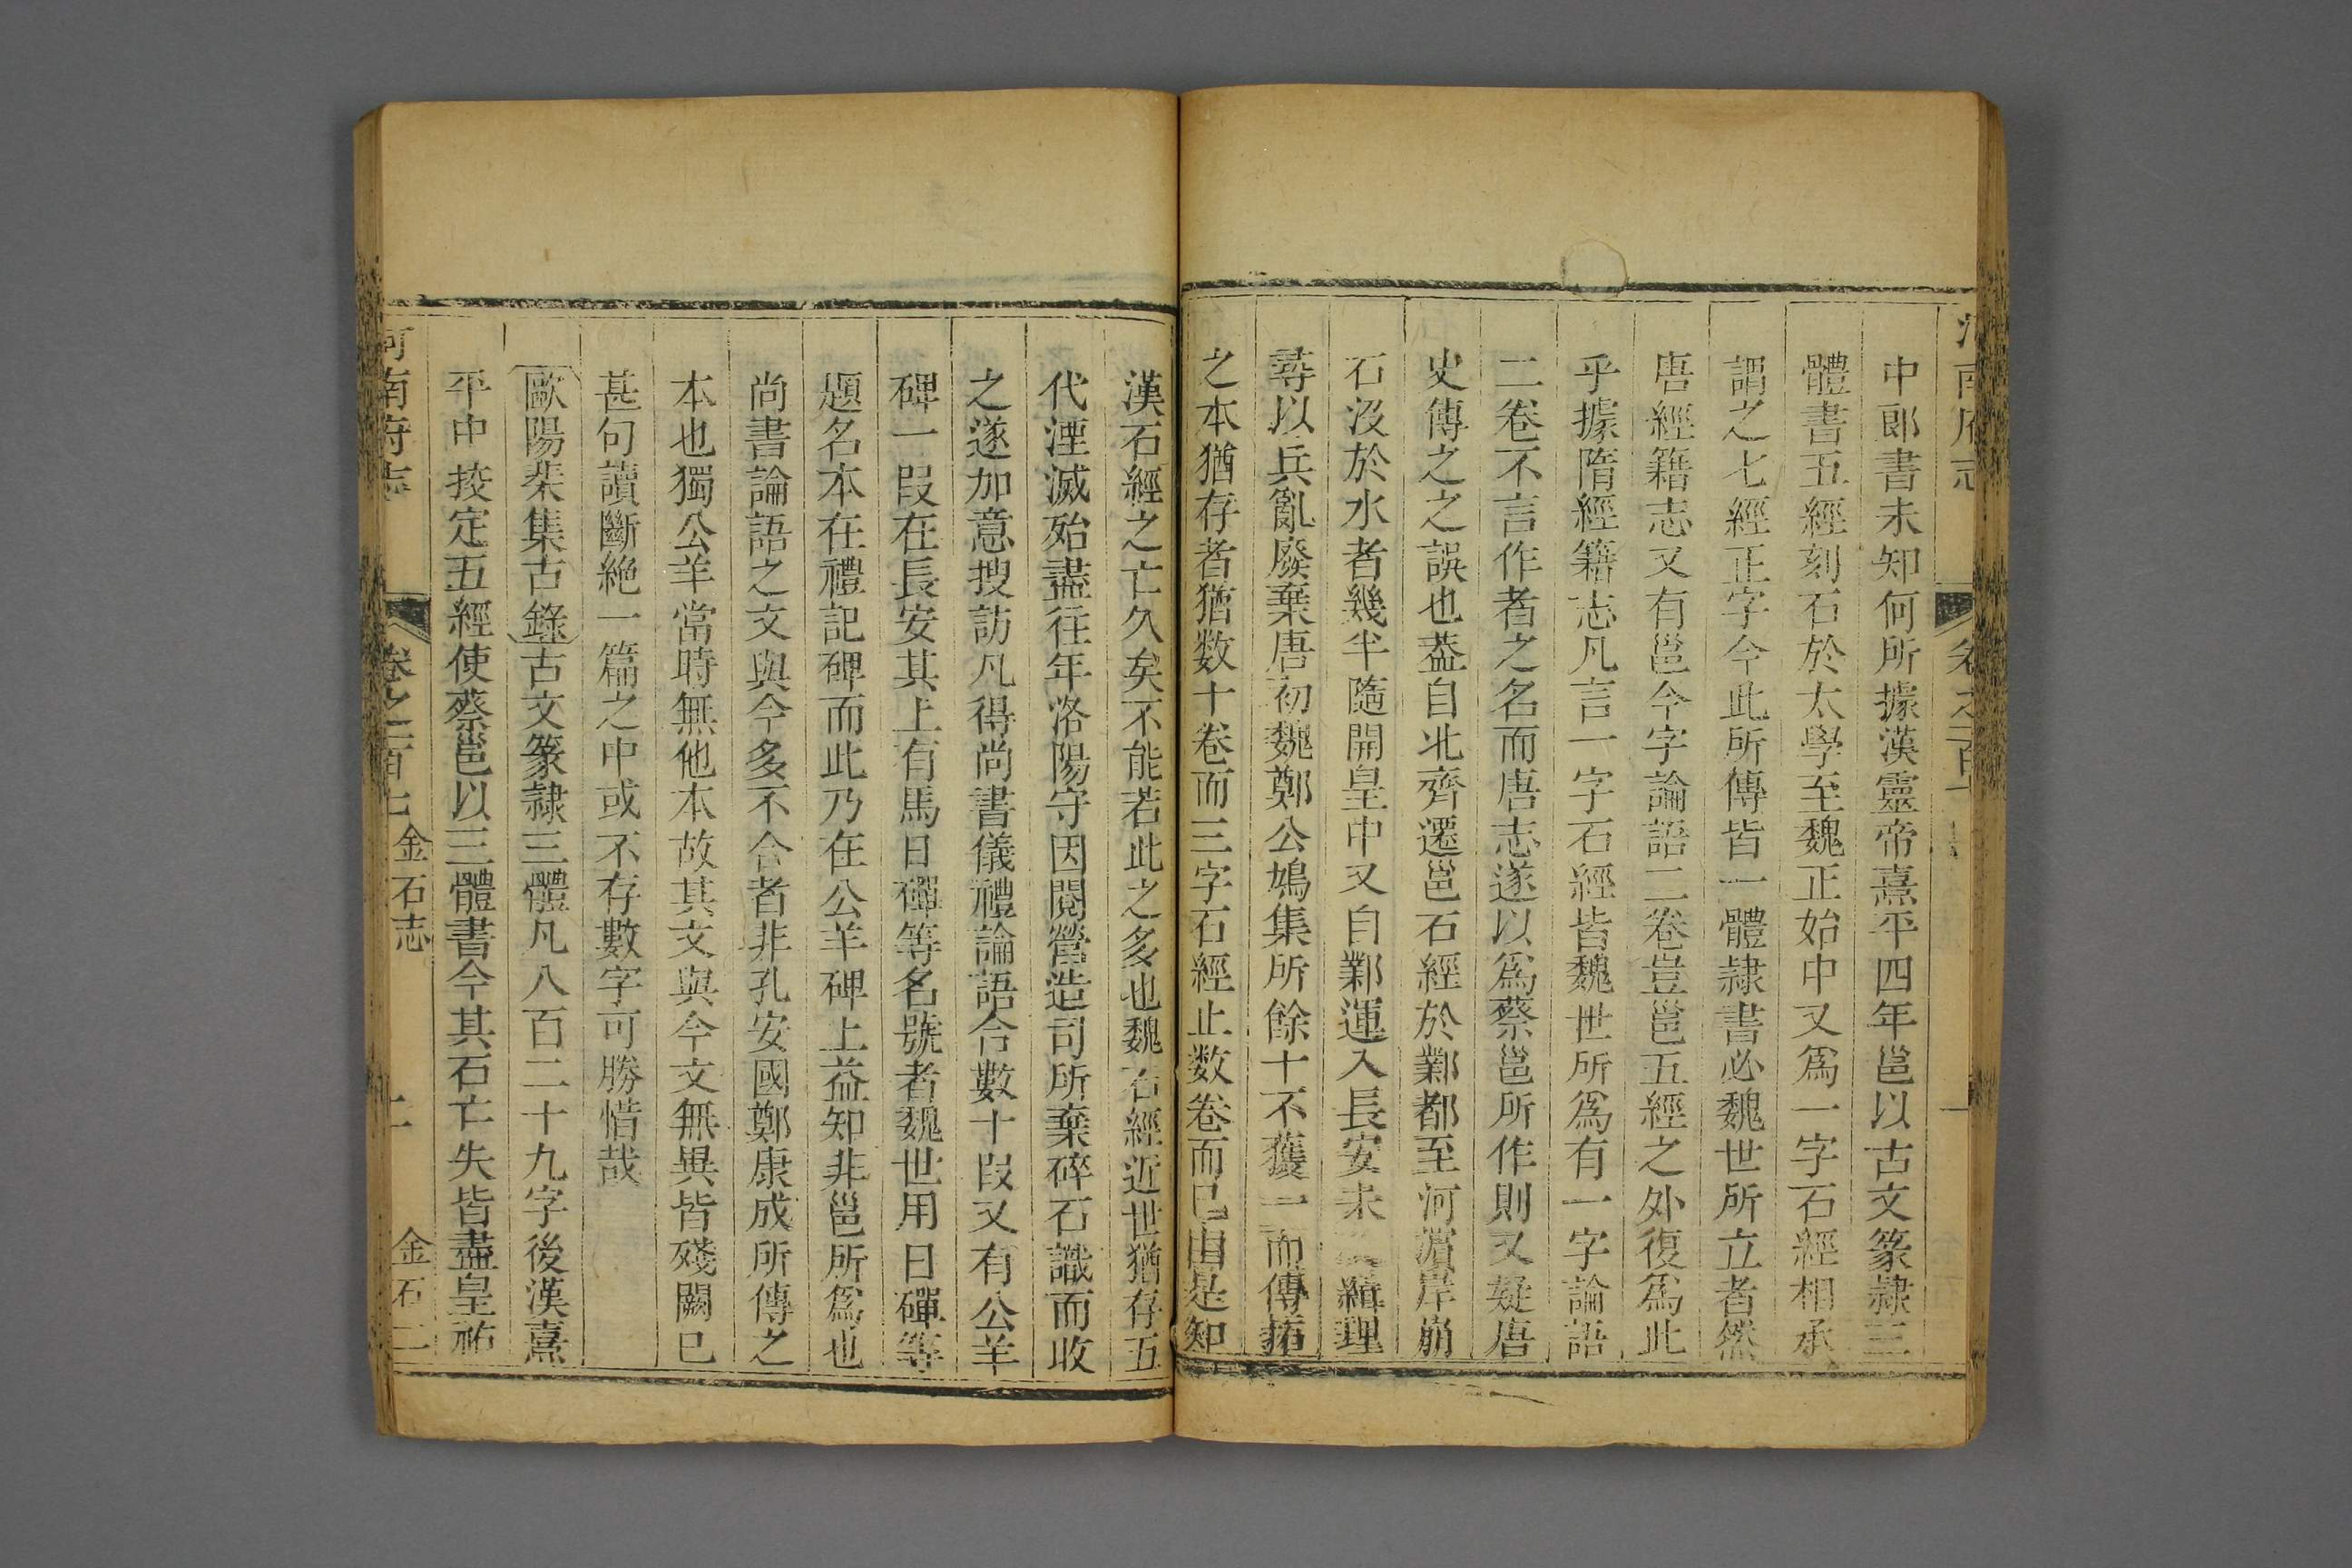 中郎書未知何所據漢靈帝熹平四年邕以古文篆隸三
體書五經刻石於太學至魏正始中又爲一字石經相承
謂之七經正字今此所傳皆一體隸書必魏世所立者然
唐經籍志又有邕今字論語二卷豈邕五經之外復爲此
乎據隋經籍志凡言一字石經皆魏世所爲有一字論語
二卷不言作者之名而唐志遂以爲蔡邕所作則又疑唐
史傳之之誤也葢自北齊遷邕石經於鄴都至河濵岸崩
石沒於水者幾半隨開皇中又自鄴運入長安未緝理
尋以兵亂廢棄唐初魏鄭公鳩集所餘十不獲一而傳拓
之本猶存者猶数十卷而三字石經止数卷而已由是知
漢石經之亡久矣不能若此之多也魏石經近世猶存五
代湮滅殆盡往年洛陽守因閱營造司所棄碎石識而收
之遂加意搜訪凡得尚書儀禮論語合數十段又有公羊
碑一段在長安其上有馬日磾等名號者魏世用日磾等
題名本在禮記碑而此乃在公羊碑上益知非邕所爲也
尚書論語之文與今多不合者非孔安國鄭康成所傳之
本也獨公羊當時無他本故其文與今文無異皆殘闕已
甚句讀斷絶一篇之中或不存數字可勝惜哉
歐陽棐集古錄古文篆隷三體凡八百二十九字後漢熹
平中挍定五經使蔡邕以三體書今其石亡失皆盡皇祐
河南府志 卷之百七 金石志 二 金石二